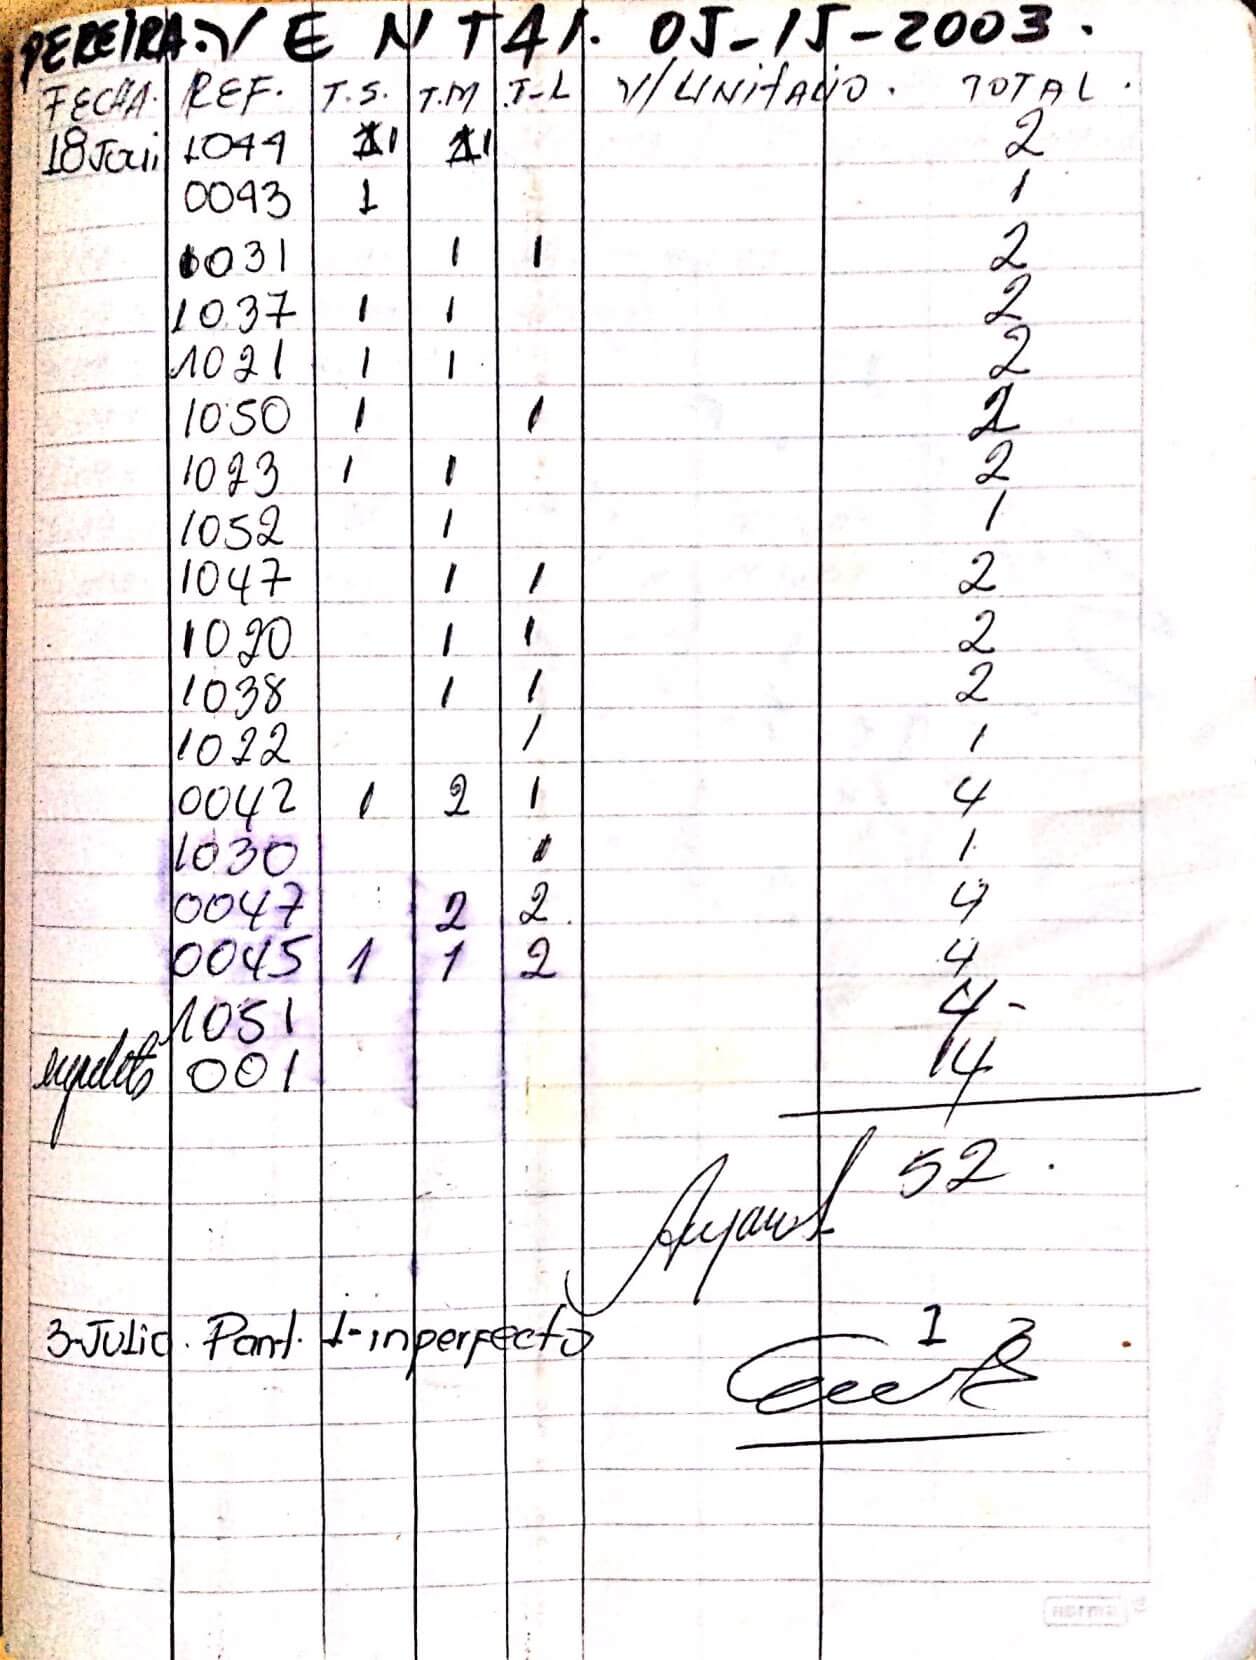 PEREIRA. VENTA 1. 05-15-2003.
FECHA. REF. T.S. T.M T-L V/UNITARIO. TOTAL.
18 Juni 1044 1 1 2
0043 1 1
1031 1 1 2
1037 1 1 2
1021 1 1 2
1050 1 1 2
1023 1 1 2
1052 1 1
1047 1 1 2
1020 1 1 2
1038 1 1 2
1022 1 1
0042 1 2 1 4
1030 1 1
0047 2 2 4
0045 1 1 2 4
1051 4-
001 14
52.
3-Julio. Pant. 1-inperfecto 1